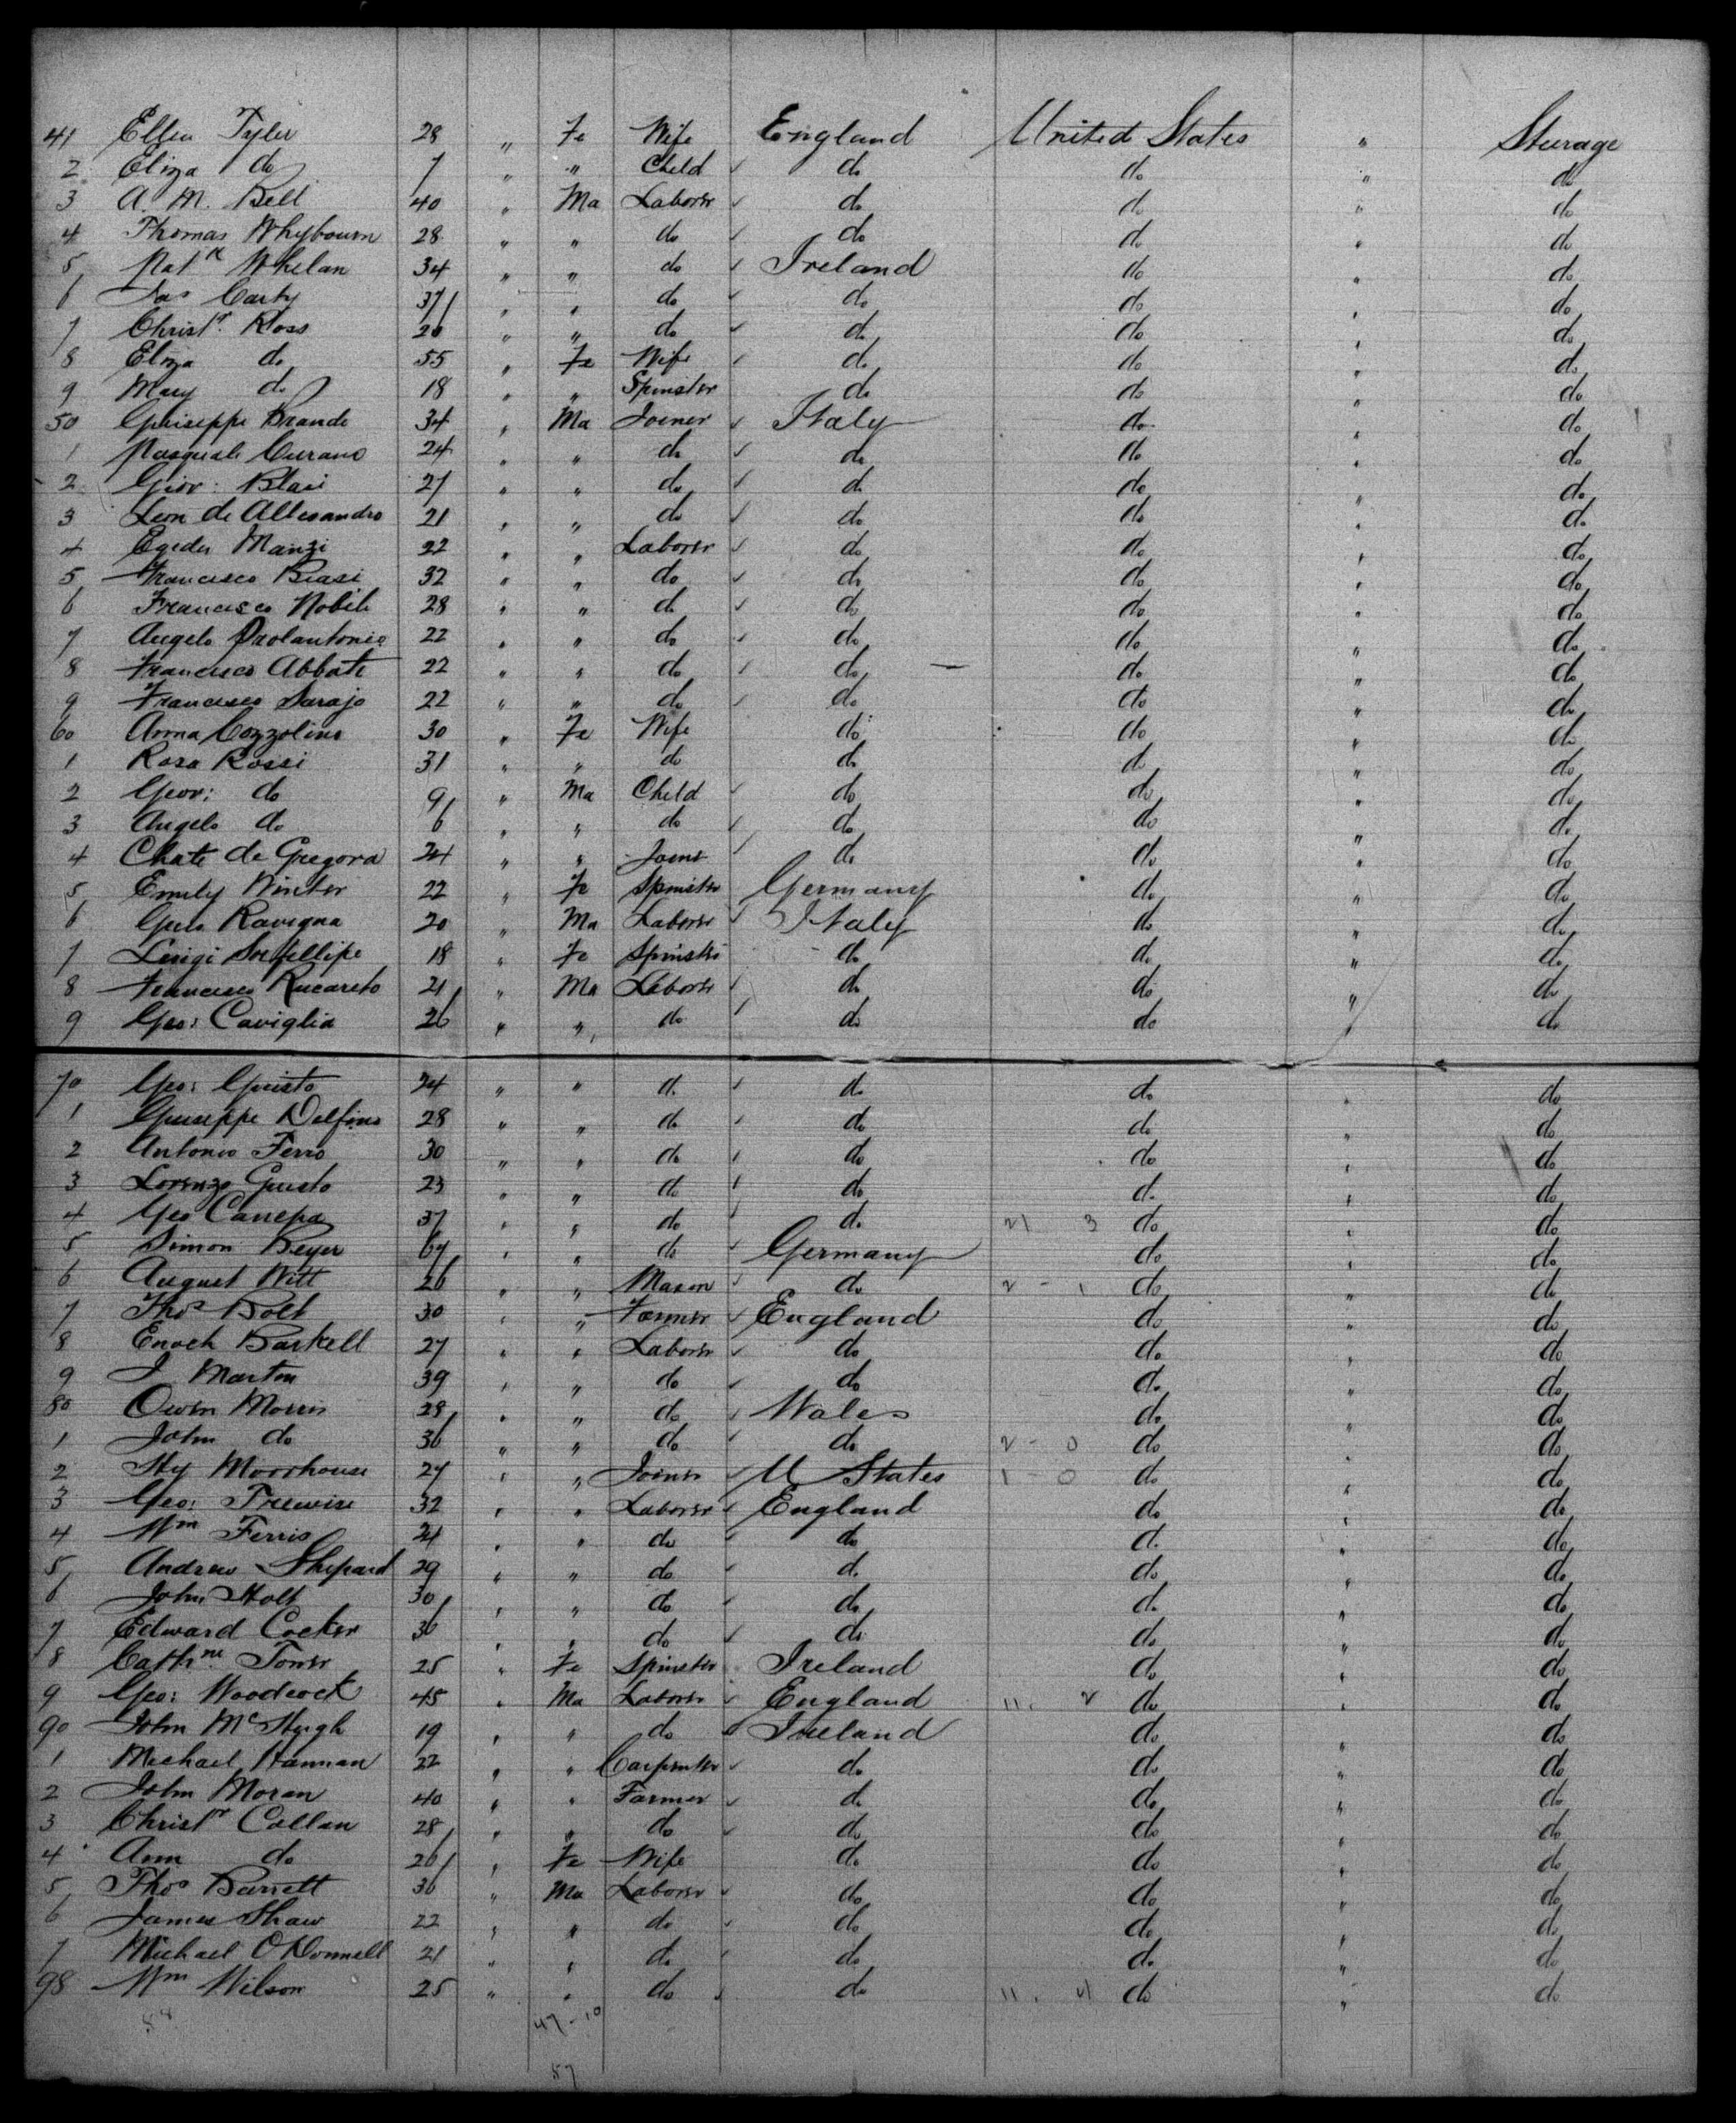 41 Ellen Tyler 28 " Fe Wife England United States " Steerage
2 Eliza do 7 " " Child ✓ do do " do
3 A. M. Bell 40 " Ma Laborer ✓ do do " do
4 Thomas Whybourn 28 " " do ✓ do do " do
5 Patk Whelan 34 " " do ✓ Ireland do " do
6 Jas Carty 37 " " do ✓ do do " do
7 Christr. Ross 26 " " do ✓ do do " do
8 Eliza do 55 " Fe Wife do do " do
9 Mary do 18 " " Spinster do do " do
50 Ghiseppe Brande 34 " Ma Joiner ✓ Italy do " do
1 Pasquale Curano 24 " " do ✓ do do " do
2 Giov: Blasi 27 " " do ✓ do do " do
3 Leon de Allesandro 21 " " do ✓ do do " do
4 Egeder Manzi 22 " " Laborer ✓ do do " do
5 Francisco Biasi 32 " " do ✓ do do " do
6 Francisco Nobile 28 " " do ✓ do do " do
7 Angelo Prolantonio 22 " " do ✓ do do " do
8 Francisco Abbate 22 " " do ✓ do do " do
9 Francisco Sarajo 22 " " do ✓ do do " do
60 Anna Cozzolino 30 " Fe Wife do do " do
1 Rosa Rossi 31 " " do do do " do
2 Geov: do 9 " Ma Child ✓ do do " do
3 Angelo do 6 " " do ✓ do do " do
4 Chate de Gregora 24 " " Joiner ✓ do do " do
5 Emily Winter 22 " Fe Spinster Germany do " do
6 Ravegna 20 " Ma Laborer ✓ Italy do " do
7 Luigi 18 " Fe Spinster do do " do
8 Francisco Rucareto 21 " Ma Laborer ✓ do do " do
9 Geo: Caviglia 26 " " do ✓ do do " do
70 Geo: Guisto 24 " " do ✓ do do " do
1 Guiseppe Delfino 28 " " do ✓ do do " do
2 Antonio Ferro 30 " " do ✓ do do " do
3 Lorenzo Guisto 23 " " do ✓ do do " do
4 Geo Canepa 37 " " do ✓ do 21 3 do " do
5 Simon Beyer 67 " " do ✓ Germany do " do
6 August Witt 26 " " Mason ✓ do 2 - 1 do " do
7 Thos Bolt 30 " " Farmer ✓ England do " do
8 Enoch Baskell 27 " " Laborer ✓ do do " do
9 J Marton 39 " " do ✓ do do " do
80 Owen Morris 28 " " do ✓ Wales do " do
1 John do 36 " " do ✓ do 2 - 0 do " do
2 Hy Moorhouse 27 " " Joiner ✓ U States 1 - 0 do " do
3 Geo: Trewise 32 " " Laborer ✓ England do " do
4 Wm Ferris 24 " " do ✓ do do " do
5 Andrew Shepard 29 " " do ✓ do do " do
6 John Holt 30 " " do ✓ do do " do
7 Edward Cocker 36 " " do ✓ do do " do
8 Cathne Tower 25 " Fe Spinster Ireland do " do
9 Geo: Woodcock 45 " Ma Laborer ✓ England 11. 2 do " do
90 John McHugh 19 " " do ✓ Ireland do " do
1 Michael Hannan 22 " " Carpenter ✓ do do " do
2 John Moran 40 " " Farmer ✓ do do " do
3 Christr Callan 28 " " do ✓ do do " do
4 Ann do 26 " Fe Wife do do " do
5 Thos Barrett 36 " Ma Laborer ✓ do do " do
6 James Shaw 22 " " do ✓ do do " do
7 Michael O'Donnell 21 " " do ✓ do do " do
98 Wm Wilson 25 " " do ✓ do 11. 4 do " do
58 47-10
57